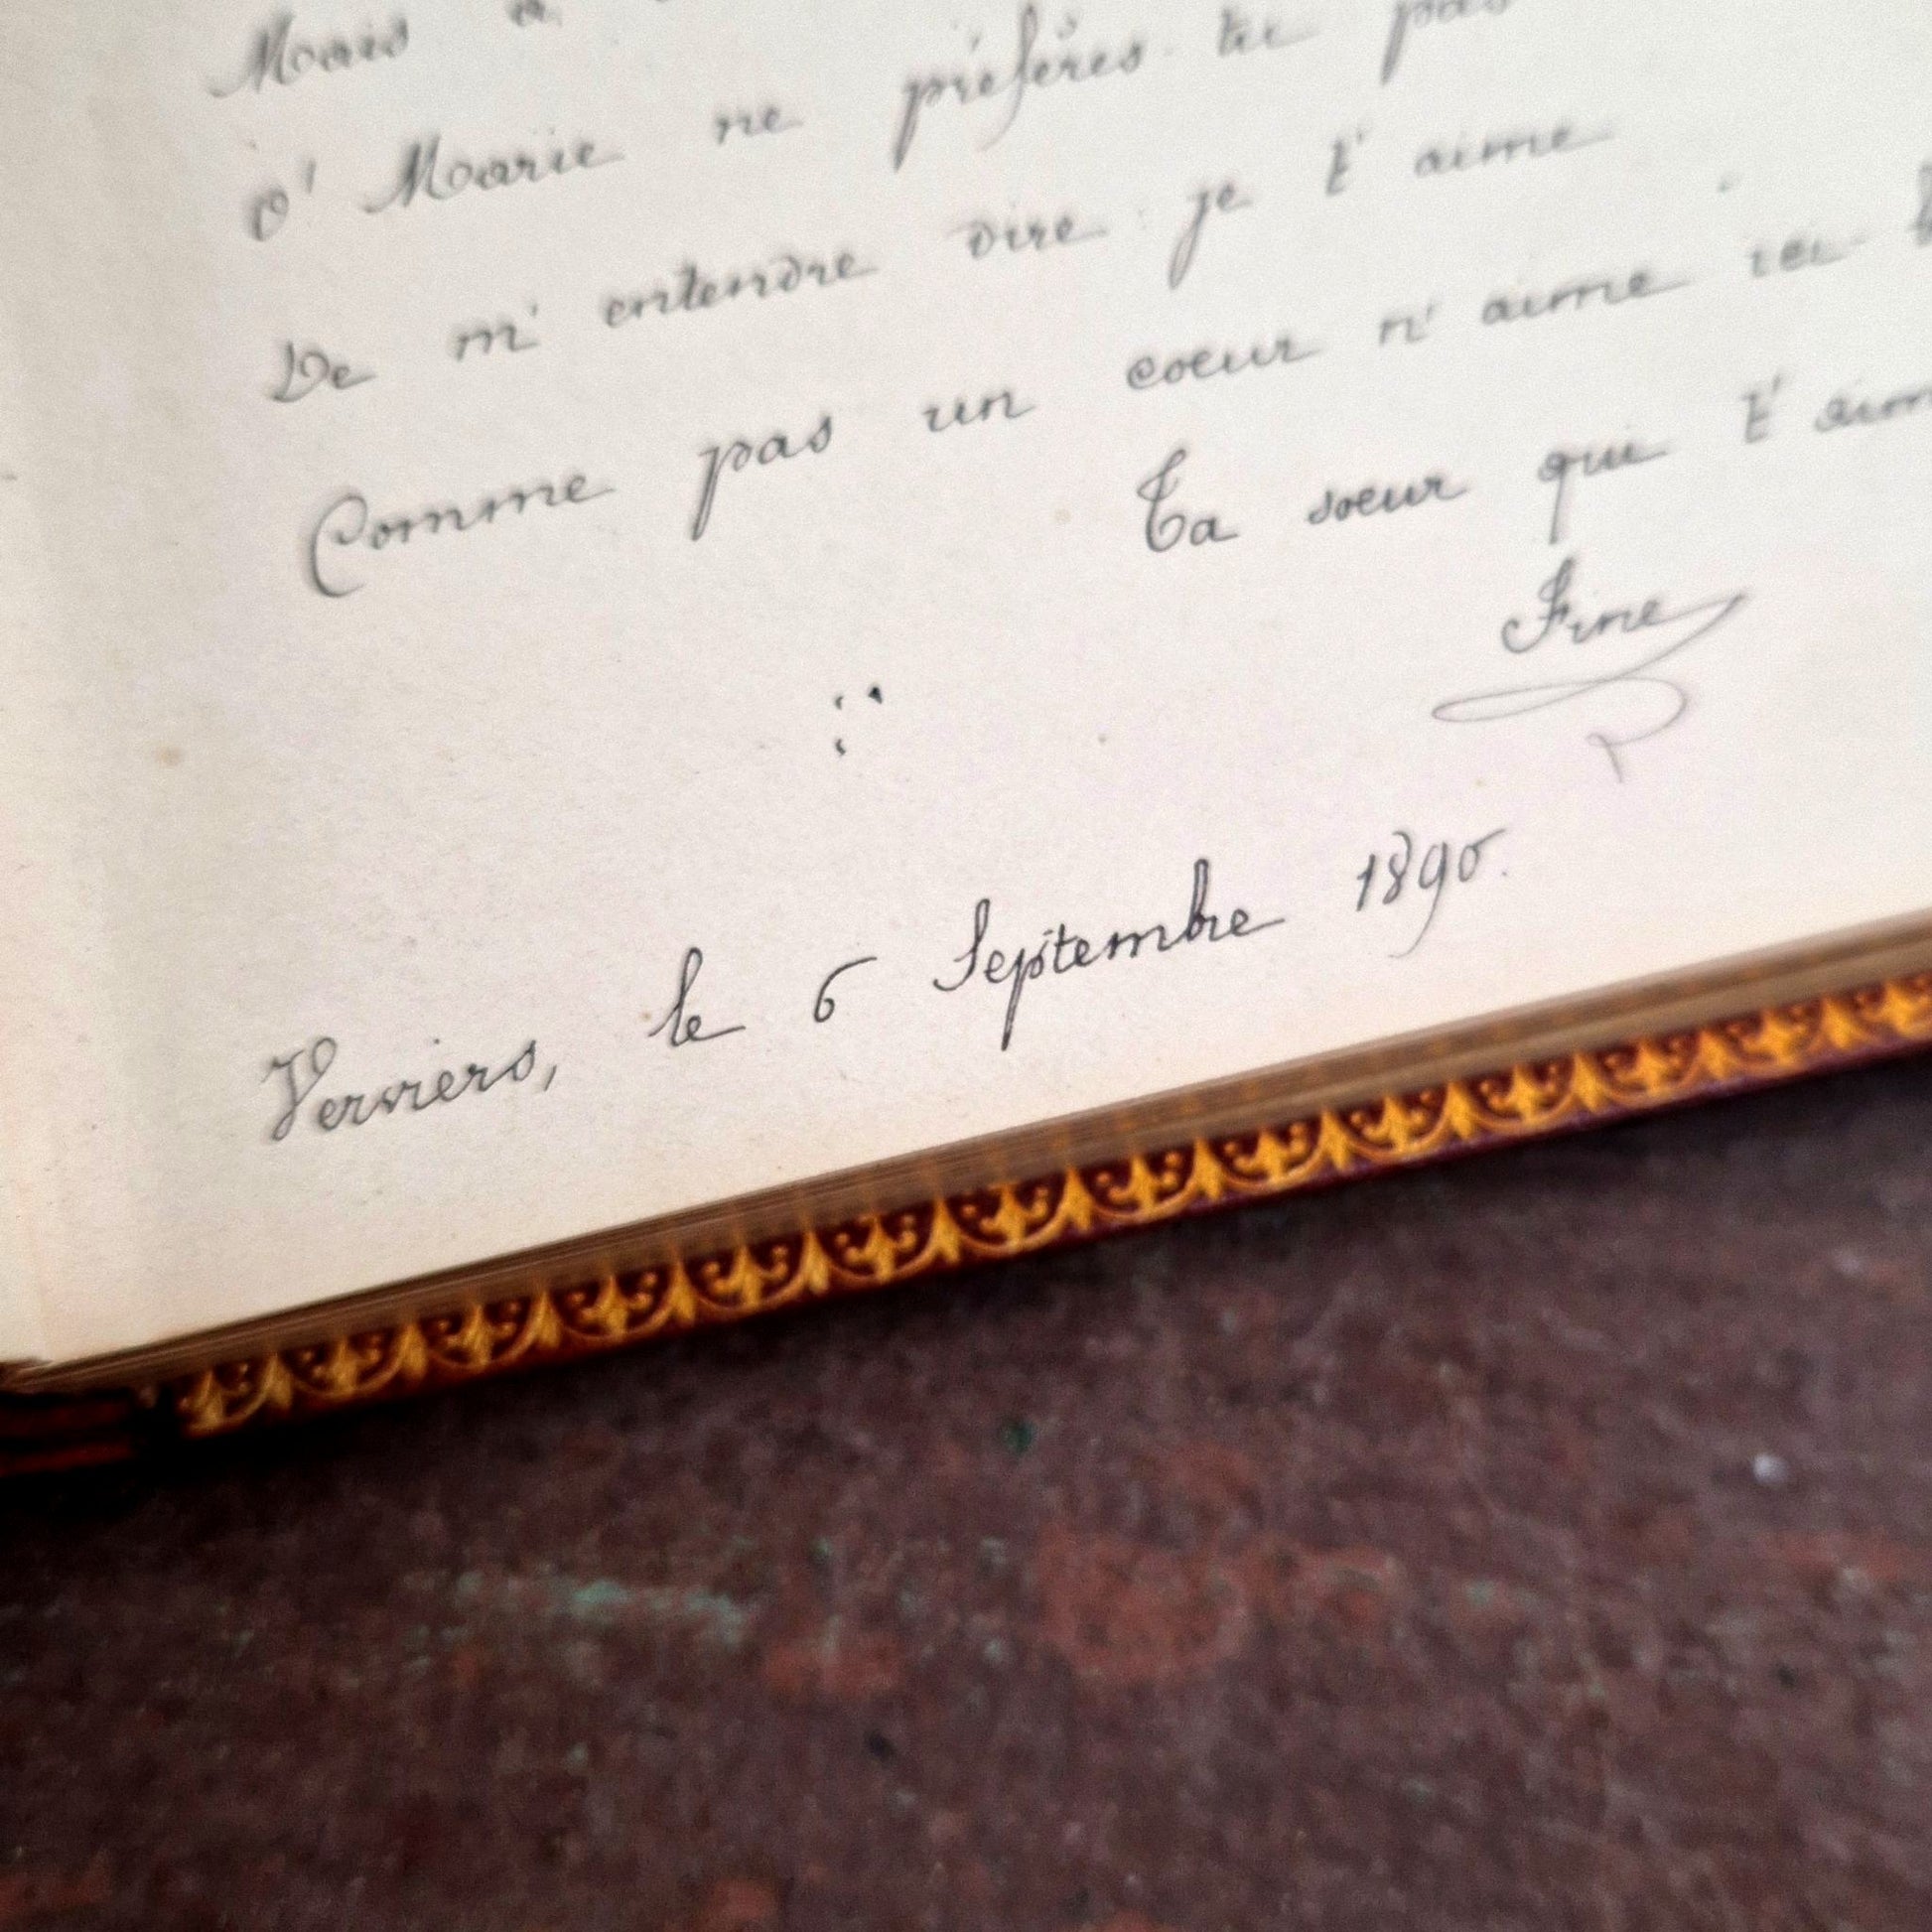 Mais
O' Marie ne préfères-tu pas
De m'entendre dire: je t'aime
Comme pas un coeur n'aime ici-
Ta soeur qui t'aim
Fine
Verviers, le 6 Septembre 1890.